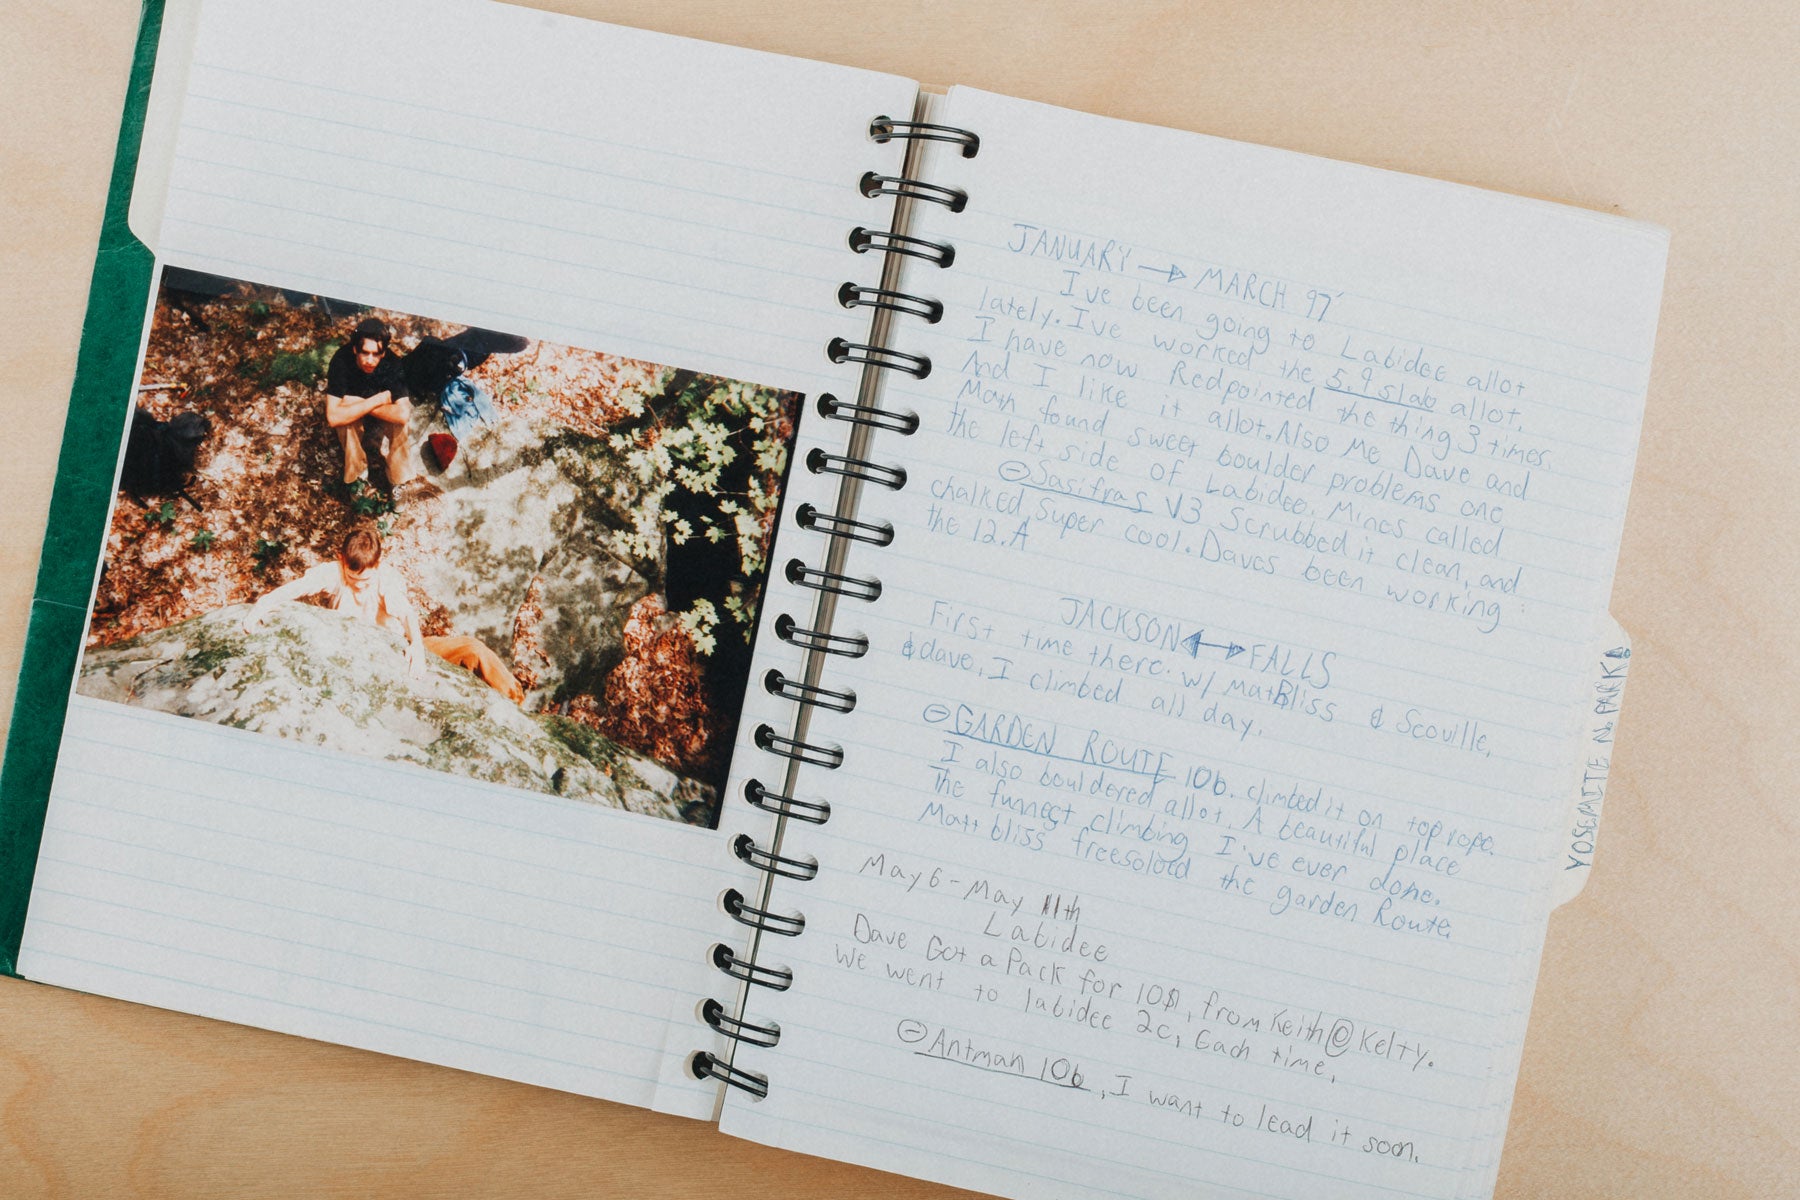 JANUARY → MARCH 97'
I've been going to Labidee allot
lately. I've worked the 5.9 slab allot.
I have now Redpointed the thing 3 times.
And I like it allot. Also Me Dave and
Matt found sweet boulder problems one
the left side of Labidee. Mines called
Sasifras V3 Scrubbed it clean, and
chalked, super cool. Daves been working
the 12.A
JACKSON ↔ FALLS
First time there. w/ mat Bliss & Scoville,
& dave, I climbed all day.
GARDEN ROUTE 10b. climbed it on top rope.
I also bouldered allot. A beautiful place
The funnest climbing I've ever done.
Matt bliss freesoloed the garden Route.
May 6 - May 11th
Labidee
Dave Got a Pack for 10$, from Keith @ Kelty.
We went to labidee 2c, Each time,
Antman 10b, I want to lead it soon.
YOSEMITE N. PARK!